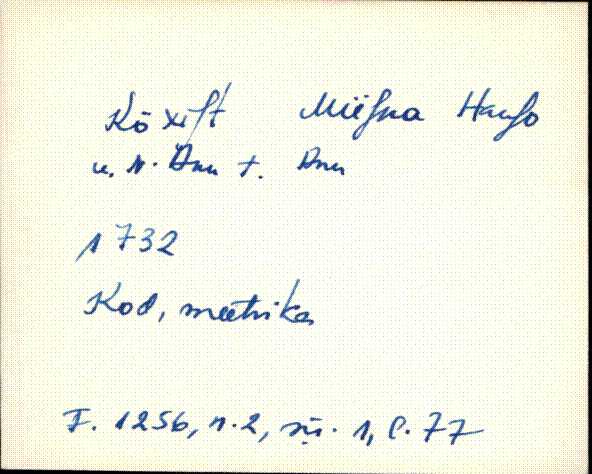 Kõ xift Müſna Hanſo
u. N. Ann t. Ann
1732
Kod, meetrika
F. 1256, n. 2, sü. 1, l. 77